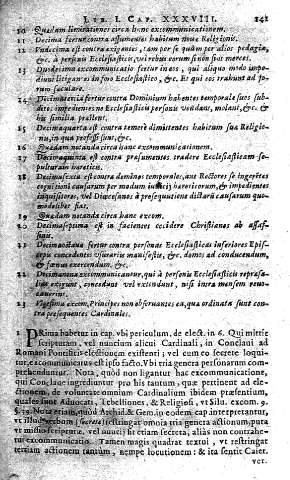 LIB. I. CAP. XXXVIII. 241
10 Quædam limitationes circa hanc excommunicationem.
11 Decima fertur contra assumentes habitum novæ Religionis.
12 Undecima est contra exigentes, tam per se quàm per alios pedagia,
&c. à personis Ecclesiasticis, vel rebus eorum non sint merces.
13 Duodecima excommunicatio fertur in eos, qui aliquo modo impediunt
litigantes in foro Ecclesiastico, &c. Et qui eos trahunt ad forum
sæculare.
14 Decimatertia fertur contra Dominium habentes temporale sues subditos
impedientes ne Ecclesiasticis personis vendant, molant, &c. &
his similia præstent.
15 Decimaquarta est contra temerè dimittentes habitum suæ Religionis,
in qua professi sunt, &c.
16 Quædam notanda circa hanc excommunicationem.
17 Decimaquinta est contra præsumentes tradere Ecclesiasticam sepulturam
hæreticis.
18 Decimasexta est contra dominos temporales, aut Rectores se ingerētes
cognitioni causarum per modum judicij hæreticorum, & impedientes
inquisitores, vel Diœcesanos à prosequutione dictarū causarum quomodolibet
fiat.
19 Quædam notanda circa hanc excom.
20 Decimaseptima est in facientes occidere Christianos ab assassinis.
21 Decimaoctava fertur contra personas Ecclesiasticas inferiores Episcopis
concedentes usurarijs manifestis, &c. domos ad conducendum,
& fœnus exercendum, &c.
22 Decimanona excommunicantur, qui à personis Ecclesiasticis represalias
exigunt, concedunt vel extendunt, nisi intra mensem revocaverint.
23 Vigesima excom. Principes non observantes ea, quæ ordinata sunt contra
persequentes Cardinales.
1 PRima habetur in cap. ubi periculum, de elect. in 6. Qui mittit
scripturam, vel nuncium alicui Cardinali, in Conclavi ad
Romani Pontificis electionem existenti; vel cum eo secretè loquitur,
excommunicatus est ipso facto. Ubi tria genera personarum comprehenduntur.
Nota, quòd non ligantur hac excommunicatione,
qui Conclave ingrediuntur pro his tantum, quæ pertinent ad electionem,
de voluntate omnium Cardinalium ibidem præsentium,
quales sunt Advocati, Tebelliones, & Religiosi, ut Silv. excom. 9.
Nota etiam, quòd Archid. & Gem. in eodem cap interpretantur,
ut illud verbum (secretè) restringat omnia tria genera actionum, puta
ut missio scripturæ, vel nuncij sit etiam secreta, aliàs non contrahetur
excommunicatio. Tamen magis quadrat textui, ut restringat
tertiam actionem tantùm, nempe locutionem: & ita sentit Caiet.